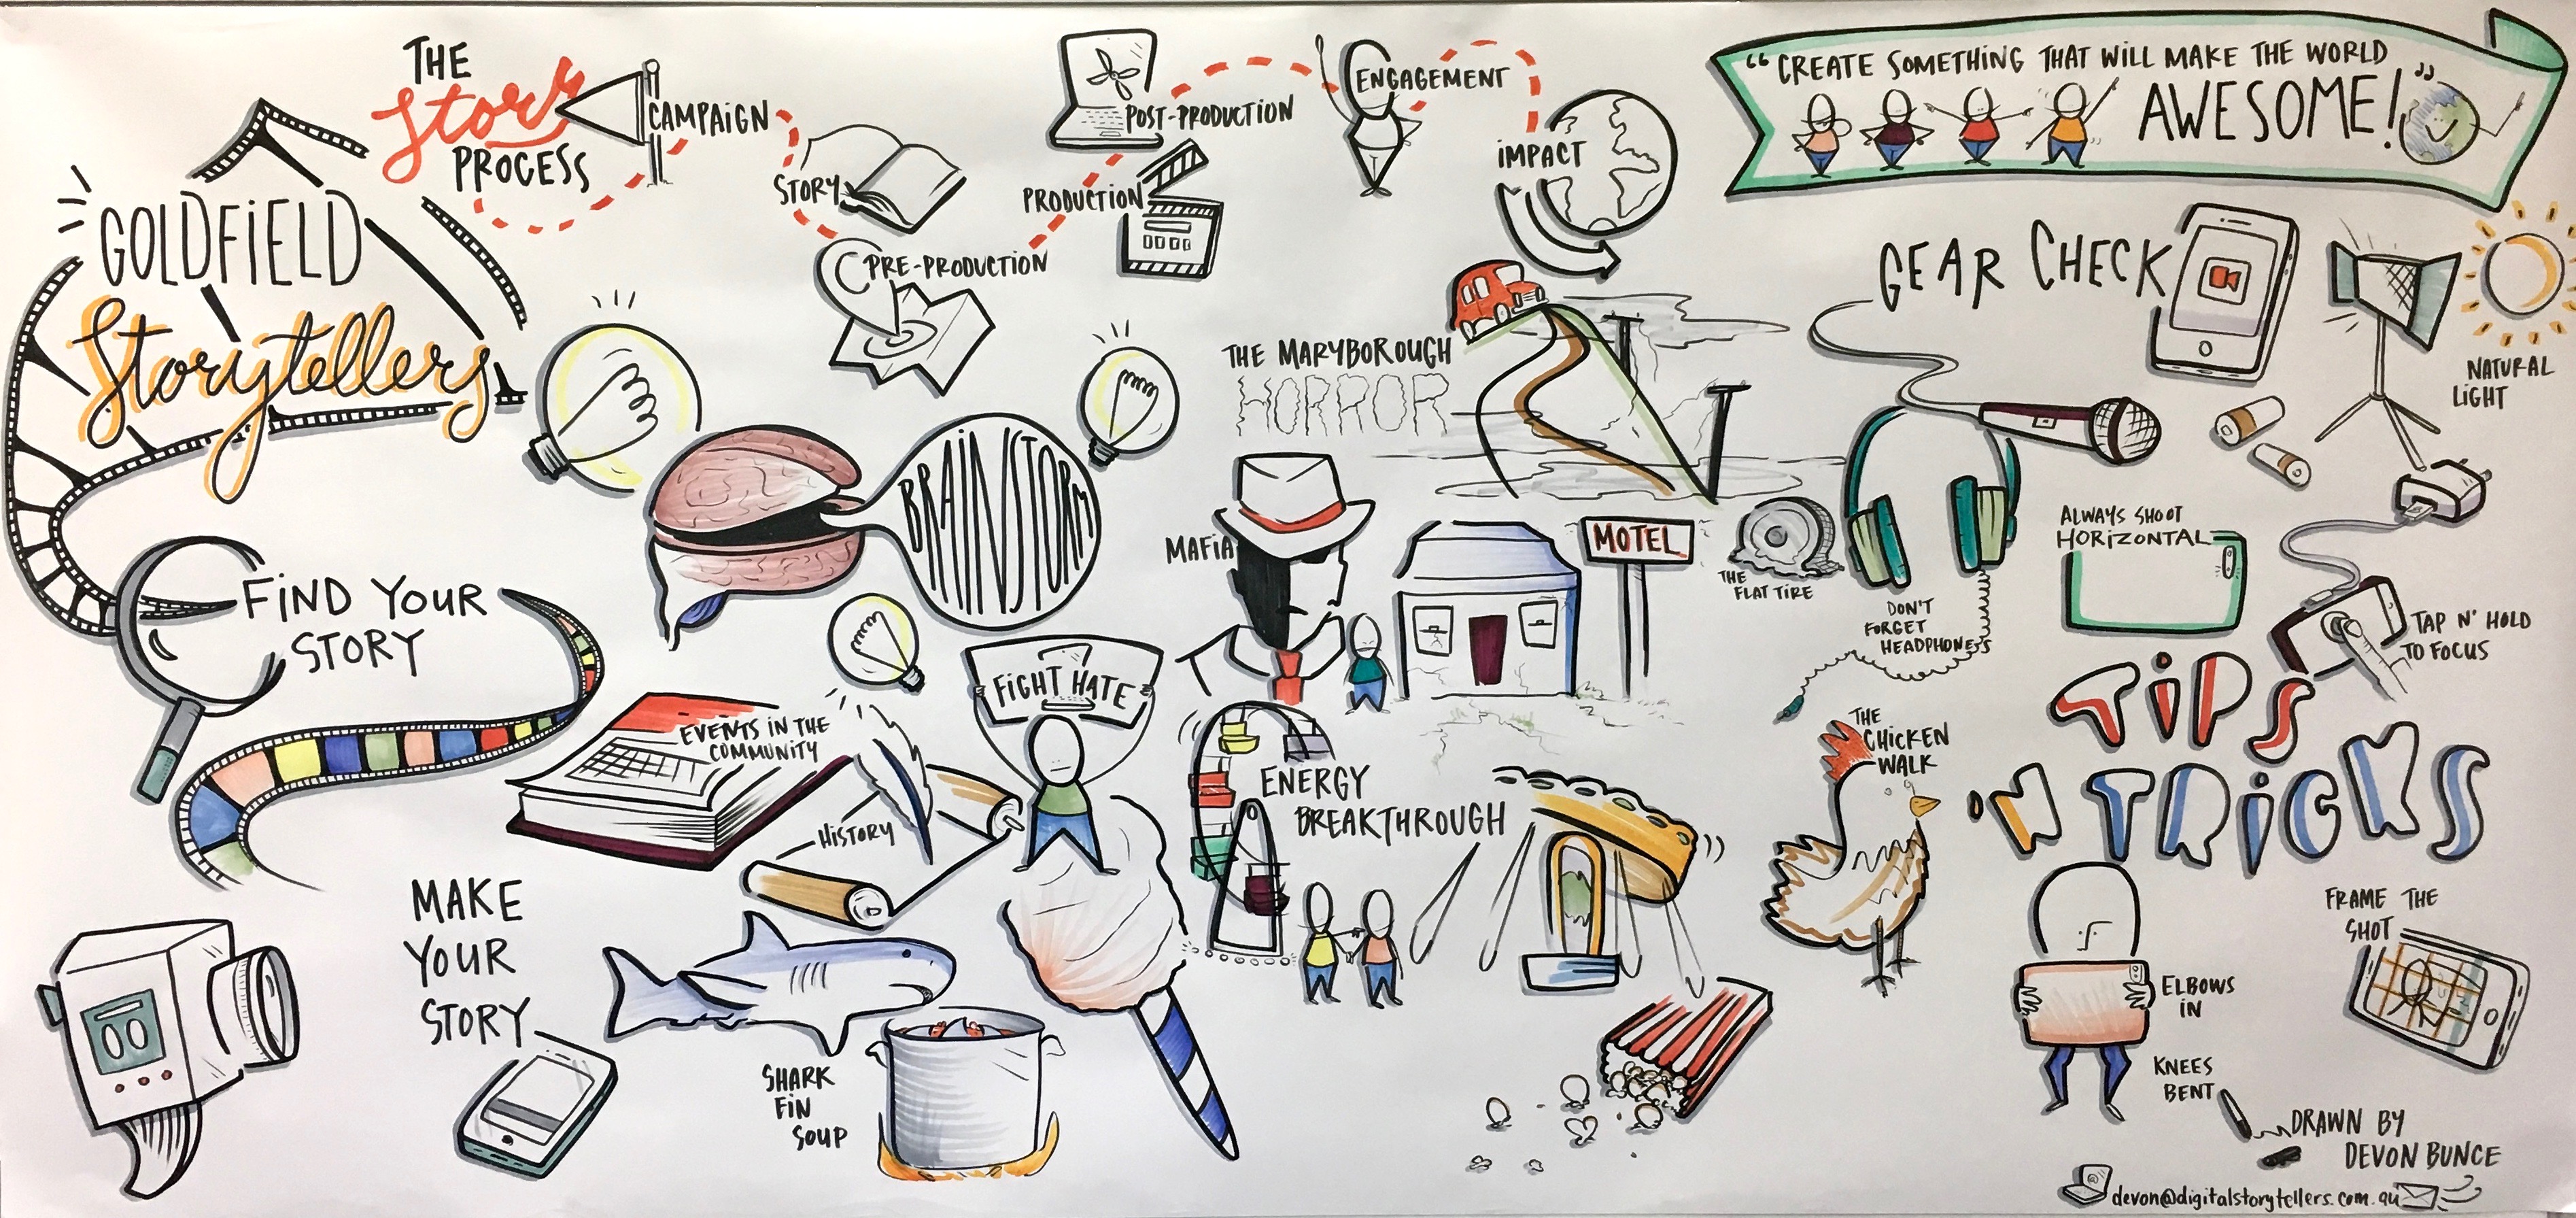 GOLDFIELD
Storytellers
THE
Story
PROCESS
CAMPAIGN
STORY
PRE-PRODUCTION
PRODUCTION
POST-PRODUCTION
ENGAGEMENT
IMPACT
"CREATE SOMETHING THAT WILL MAKE THE WORLD
AWESOME!"
FIND YOUR
STORY
BRAINSTORM
EVENTS IN THE
COMMUNITY
HISTORY
FIGHT HATE
THE MARYBOROUGH
HORROR
MAFIA
MOTEL
THE
FLAT TIRE
ENERGY
BREAKTHROUGH
MAKE
YOUR
STORY
SHARK
FIN
SOUP
GEAR CHECK
NATURAL
LIGHT
DON'T
FORGET
HEADPHONES
ALWAYS SHOOT
HORIZONTAL
TAP N' HOLD
TO FOCUS
TIPS
'N TRICKS
THE
CHICKEN
WALK
FRAME THE
SHOT
ELBOWS
IN
KNEES
BENT
DRAWN BY
DEVON BUNCE
devon@digitalstorytellers.com.au